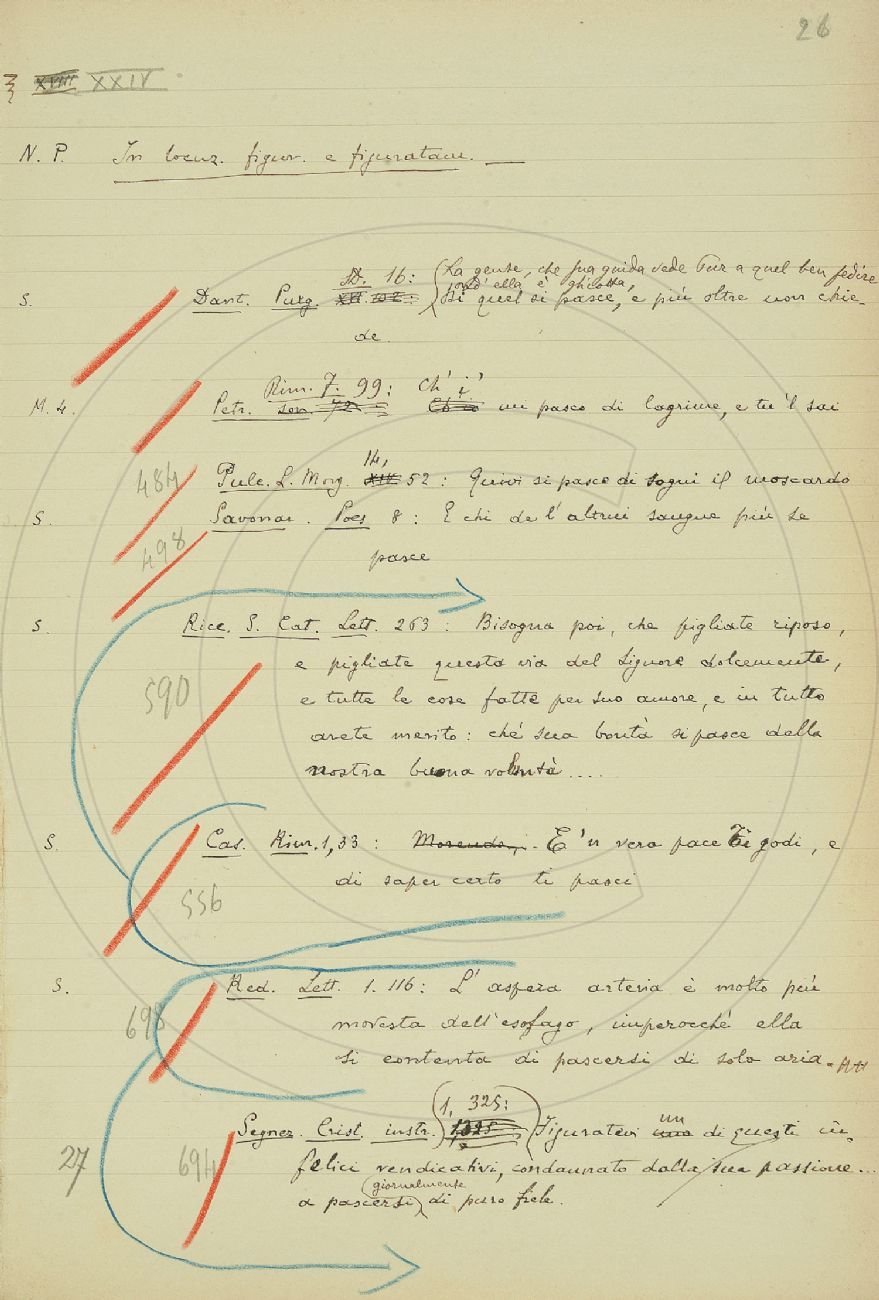 26
§ XVIII XXIV
N. P. In locuz. figur. e figuratam. —
16: La gente, che sua guida vede Pur a quel ben fedire
ond' ella è ghiotta,
S. Dant. Purg. Di quel si pasce, e più oltre non chie-
de.
Rim. 7. 99: Ch' i'
M. 4. Petr. son. mi pasco di lagrime, e tu 'l sai
14,
484 Pulc. L. Morg. XIV 52: Quivi si pasce di sogni il moscardo
S. Savonar. Poes 8: E chi de l' altrui sangue più se
498 pasce
S. Ricc. S. Cat. Lett. 263: Bisogna poi, che pigliate riposo,
e pigliate questa via del Signore dolcemente,
590 e tutte le cose fatte per suo amore, e in tutto
arete merito: ché sua bontà si pasce della
nostra buona volontà....
S. Cas. Rim. 1, 33: Morendo, E 'n vera pace Ti godi, e
556 di saper certo ti pasci
S. Red. Lett. 1. 116: L' aspera arteria è molto più
698 modesta dell' esofago, imperocchè ella
si contenta di pascersi di sola aria. #
1, 325:
Segner. Crist. instr. 1,325 Figuratevi un di questi in-
27 694 felici vendicativi, condannato dalla sua passione...
giornalmente
a pascersi di puro fiele.